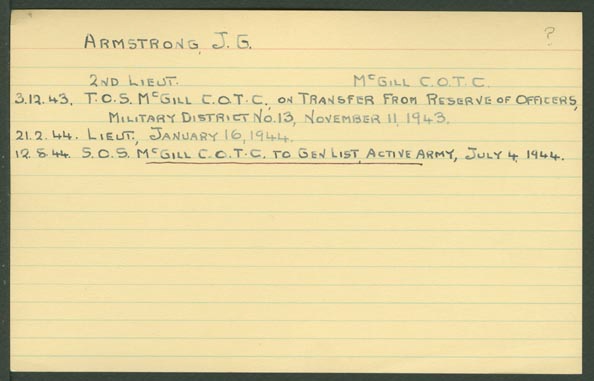 ARMSTRONG, J. G. ?
2ND LIEUT. McGILL C.O.T.C.
3.12.43. T.O.S. McGILL C.O.T.C., ON TRANSFER FROM RESERVE OF OFFICERS,
MILITARY DISTRICT No.13, NOVEMBER 11, 1943.
21.2.44. LIEUT., JANUARY 16, 1944.
12.8.44. S.O.S. McGILL C.O.T.C. TO GEN LIST, ACTIVE ARMY, JULY 4, 1944.